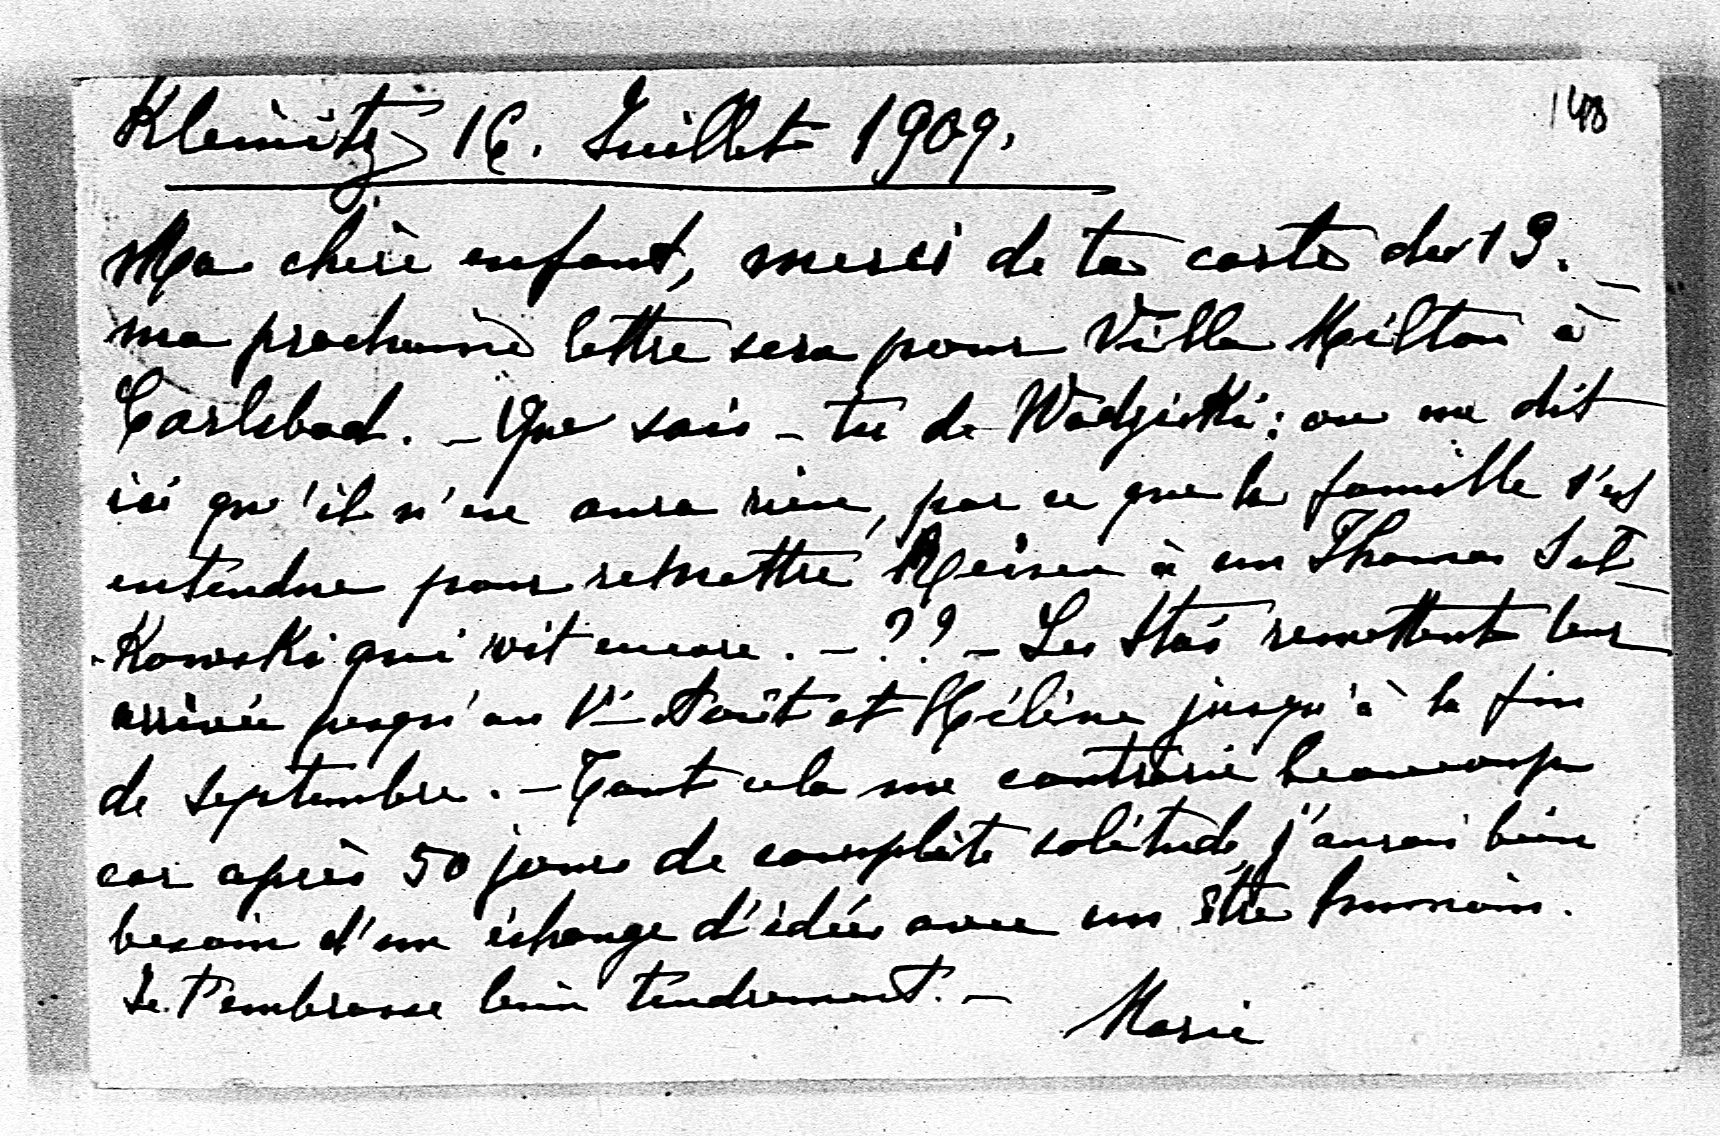 148
Kleinitz 16. Juillet 1909.
Ma chère enfant, merci de ta carte du 13. —
ma prochaine lettre sera pour Villa Milton à
Carlsbad. — Que sais-tu de Wodziski: on me dit
ici qu'il n'en aura rien, par ce que la famille s'est
entendue pour remettre à un Thomas Sut-
kowski qui vit encore. — ?? — Les Staś remettent leur
arrivée jusqu'au 1er Août et Hélène jusqu'à la fin
de septembre. — Tout cela me contrarie beaucoup
car après 50 jours de complète solitude, j'aurai bien
besoin d'un échange d'idées avec un être humain.
Je t'embrasse bien tendrement. —
Marie